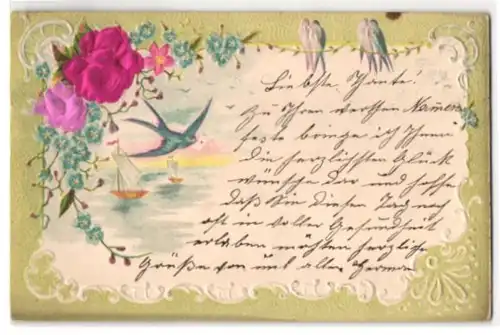 Liebste Thante!
Zu Ihren werthen Namens
feste bringe ich Ihnen
die herzlichsten Glück
wünsche dar und hoffe
daß Sie diesen Tag noch
oft in voller Gesundheit
erleben möchten herzliche
Grüße von uns allen Herman